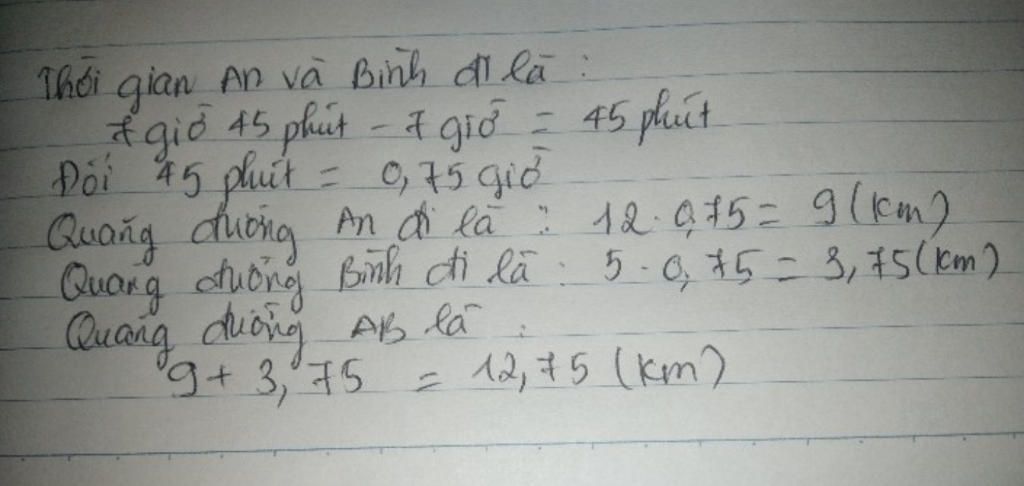 Thời gian An và Bình đi là :
7 giờ 45 phút - 7 giờ = 45 phút
Đổi 45 phút = 0,75 giờ
Quãng đường An đi là : 12 . 0,75 = 9 (km)
Quãng đường Bình đi là : 5 . 0,75 = 3,75 (km)
Quãng đường AB là :
9 + 3,75 = 12,75 (km)